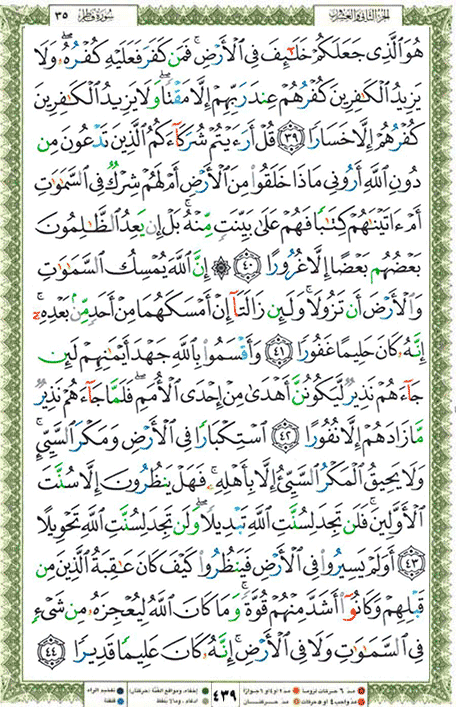 سورة فاطر ٣٥ الجزء الثاني والعشرون
هُوَ ٱلَّذِى جَعَلَكُمْ خَلَٰٓئِفَ فِى ٱلْأَرْضِ ۚ فَمَن كَفَرَ فَعَلَيْهِ كُفْرُهُۥ ۖ وَلَا
يَزِيدُ ٱلْكَٰفِرِينَ كُفْرُهُمْ عِندَ رَبِّهِمْ إِلَّا مَقْتًا ۖ وَلَا يَزِيدُ ٱلْكَٰفِرِينَ
كُفْرُهُمْ إِلَّا خَسَارًا ٣٩ قُلْ أَرَءَيْتُمْ شُرَكَآءَكُمُ ٱلَّذِينَ تَدْعُونَ مِن
دُونِ ٱللَّهِ أَرُونِى مَاذَا خَلَقُوا۟ مِنَ ٱلْأَرْضِ أَمْ لَهُمْ شِرْكٌ فِى ٱلسَّمَٰوَٰتِ
أَمْ ءَاتَيْنَٰهُمْ كِتَٰبًا فَهُمْ عَلَىٰ بَيِّنَتٍ مِّنْهُ ۚ بَلْ إِن يَعِدُ ٱلظَّٰلِمُونَ
بَعْضُهُم بَعْضًا إِلَّا غُرُورًا ٤٠ ۞ إِنَّ ٱللَّهَ يُمْسِكُ ٱلسَّمَٰوَٰتِ
وَٱلْأَرْضَ أَن تَزُولَا ۚ وَلَئِن زَالَتَآ إِنْ أَمْسَكَهُمَا مِنْ أَحَدٍ مِّنۢ بَعْدِهِۦٓ ۚ
إِنَّهُۥ كَانَ حَلِيمًا غَفُورًا ٤١ وَأَقْسَمُوا۟ بِٱللَّهِ جَهْدَ أَيْمَٰنِهِمْ لَئِن
جَآءَهُمْ نَذِيرٌ لَّيَكُونُنَّ أَهْدَىٰ مِنْ إِحْدَى ٱلْأُمَمِ ۖ فَلَمَّا جَآءَهُمْ نَذِيرٌ
مَّا زَادَهُمْ إِلَّا نُفُورًا ٤٢ ٱسْتِكْبَارًا فِى ٱلْأَرْضِ وَمَكْرَ ٱلسَّيِّئِ ۚ
وَلَا يَحِيقُ ٱلْمَكْرُ ٱلسَّيِّئُ إِلَّا بِأَهْلِهِۦ ۚ فَهَلْ يَنظُرُونَ إِلَّا سُنَّتَ
ٱلْأَوَّلِينَ ۚ فَلَن تَجِدَ لِسُنَّتِ ٱللَّهِ تَبْدِيلًا ۖ وَلَن تَجِدَ لِسُنَّتِ ٱللَّهِ تَحْوِيلًا
٤٣ أَوَلَمْ يَسِيرُوا۟ فِى ٱلْأَرْضِ فَيَنظُرُوا۟ كَيْفَ كَانَ عَٰقِبَةُ ٱلَّذِينَ مِن
قَبْلِهِمْ وَكَانُوٓا۟ أَشَدَّ مِنْهُمْ قُوَّةً ۚ وَمَا كَانَ ٱللَّهُ لِيُعْجِزَهُۥ مِن شَىْءٍ
فِى ٱلسَّمَٰوَٰتِ وَلَا فِى ٱلْأَرْضِ ۚ إِنَّهُۥ كَانَ عَلِيمًا قَدِيرًا ٤٤
مدّ ٦ حركات لزوماً مدّ ٢ او ٤ او ٦ جوازاً إخفاء، ومواقع الغُنَّة (حركتان) تفخيم الراء
مدّ واجب ٤ او ٥ حركات مدّ حركتان ادغام، وما لا يُلفظ قلقلة
٤٣٩